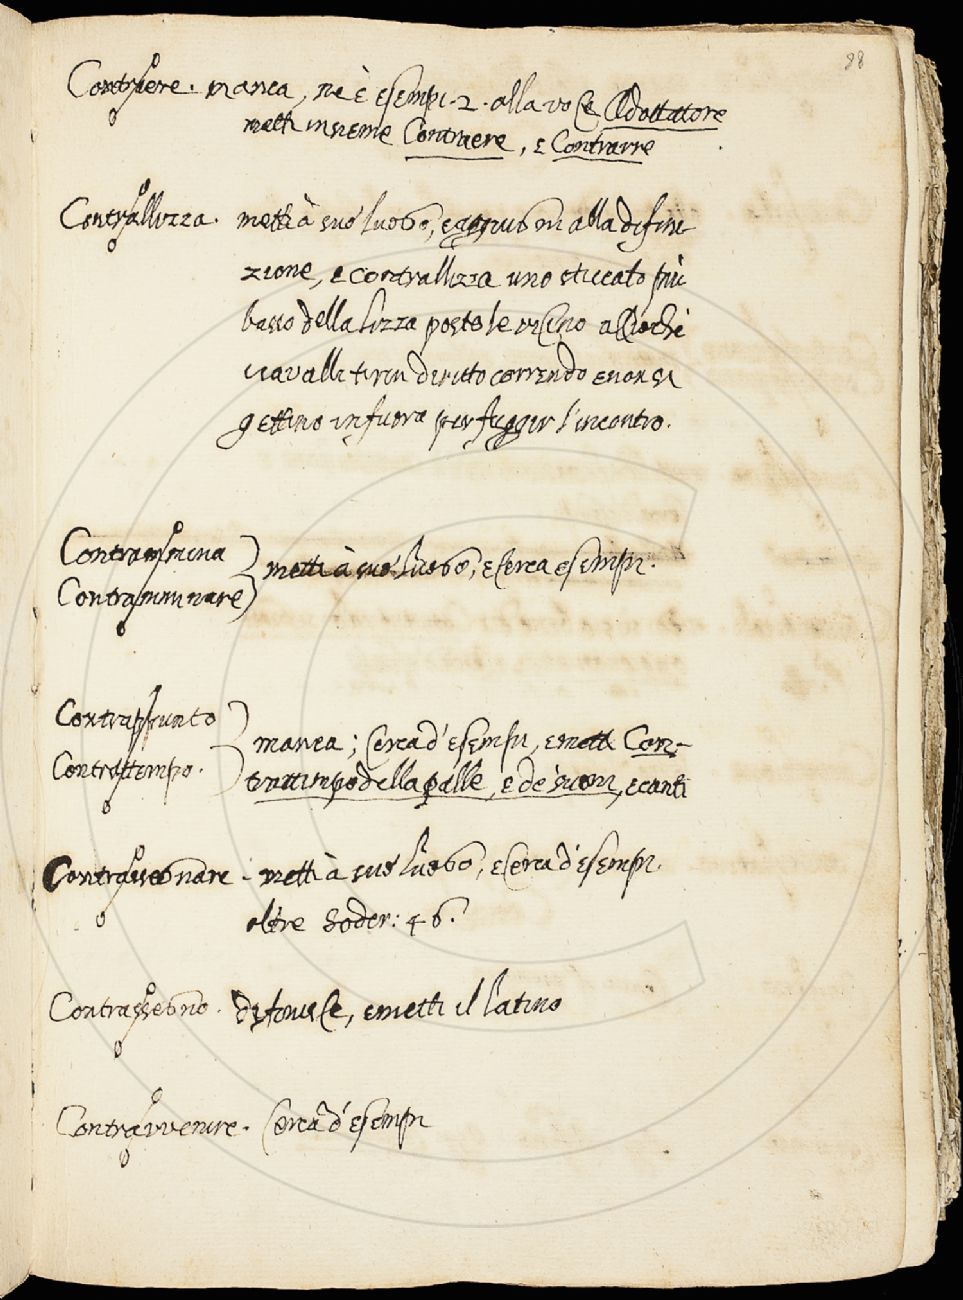 88
Contraere. manca, ne è esempi. 2. alla voce Adottatore
metti insieme Contraere, e Contrarre
Contrallizza. metti à suo luogo, e aggiugni alla difini-
zione, e contrallizza uno steccato più
basso della lizza postole vicino acciochè
i cavalli tirin diritto correndo e non si
gettino in fuora per fuggir l'incontro.
Contrammina
Contramminare
metti à suo luogo, e cerca esempi.
Contrappunto
Contrattempo.
manca; cerca d'esempi, e metti Con-
trattempo della palle, e de' suoni, e canti
Contrassegnare. metti à suo luogo, e cerca d'esempi.
oltre Soder: 46.
Contrassegno. difinisce, e metti il latino
Contravvenire. cerca d'esempi